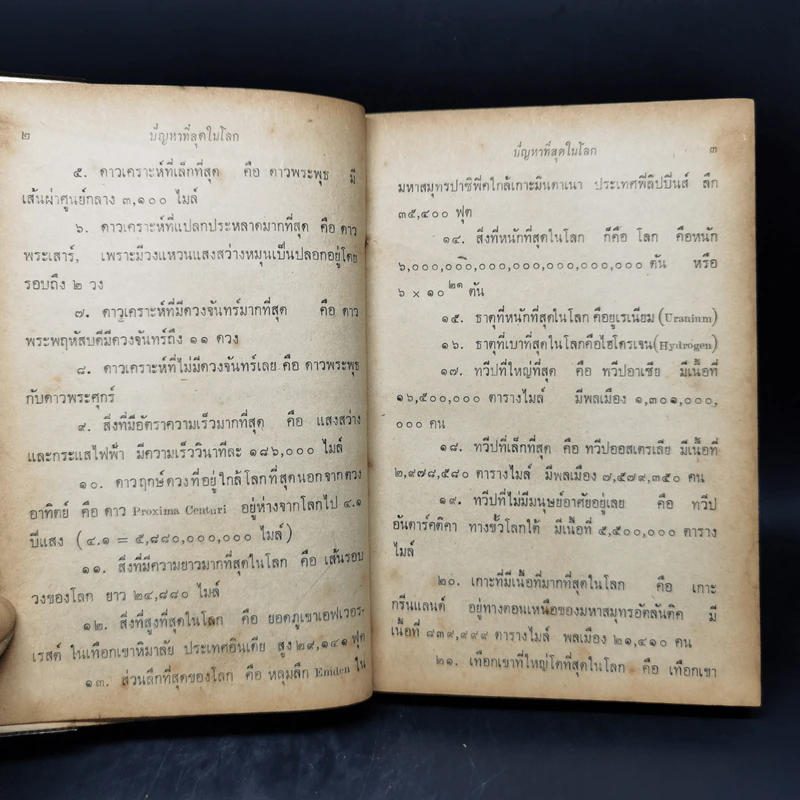 ๒ ปัญหาที่สุดในโลก
๕. ดาวเคราะห์ที่เล็กที่สุด คือ ดาวพระพุธ มี
เส้นผ่าศูนย์กลาง ๓,๑๐๐ ไมล์
๖. ดาวเคราะห์ที่แปลกประหลาดมากที่สุด คือ ดาว
พระเสาร์, เพราะมีวงแหวนแสงสว่างหมุนเป็นปลอกอยู่โดย
รอบถึง ๒ วง
๗. ดาวเคราะห์ที่มีดวงจันทร์มากที่สุด คือ ดาว
พระพฤหัสบดีมีดวงจันทร์ถึง ๑๑ ดวง
๘. ดาวเคราะห์ที่ไม่มีดวงจันทร์เลย คือ ดาวพระพุธ
กับดาวพระศุกร์
๙. สิ่งที่มีอัตราความเร็วมากที่สุด คือ แสงสว่าง
และกระแสไฟฟ้า มีความเร็ววินาทีละ ๑๘๖,๐๐๐ ไมล์
๑๐. ดาวฤกษ์ดวงที่อยู่ใกล้โลกที่สุดนอกจากดวง
อาทิตย์ คือ ดาว Proxima Centuri อยู่ห่างจากโลกไป ๔.๑
ปีแสง (๔.๑ = ๕,๘๘๐,๐๐๐,๐๐๐ ไมล์)
๑๑. สิ่งที่มีความยาวมากที่สุดในโลก คือ เส้นรอบ
วงของโลก ยาว ๒๔,๘๘๐ ไมล์
๑๒. สิ่งที่สูงที่สุดในโลก คือ ยอดภูเขาเอฟเวอร-
เรสต์ ในเทือกเขาหิมาลัย ประเทศอินเดีย สูง ๒๙,๑๔๑ ฟุต
๑๓. ส่วนลึกที่สุดของโลก คือ หลุมลึก Emden ใน
ปัญหาที่สุดในโลก ๓
มหาสมุทรปาซิฟิคใกล้เกาะมินดาเนา ประเทศฟิลิปปินส์ ลึก
๓๕,๔๐๐ ฟุต
๑๔. สิ่งที่หนักที่สุดในโลก ก็คือ โลก คือหนัก
๖,๐๐๐,๐๐๐,๐๐๐,๐๐๐,๐๐๐,๐๐๐,๐๐๐ ตัน หรือ
๖ × ๑๐²¹ ตัน
๑๕. ธาตุที่หนักที่สุดในโลก คือยูเรเนียม (Uranium)
๑๖. ธาตุที่เบาที่สุดในโลกคือไฮโดรเจน(Hydrogen)
๑๗. ทวีปที่ใหญ่ที่สุด คือ ทวีปอาเซีย มีเนื้อที่
๑๖,๕๐๐,๐๐๐ ตารางไมล์ มีพลเมือง ๑,๓๐๑,๐๐๐,
๐๐๐ คน
๑๘. ทวีปที่เล็กที่สุด คือ ทวีปออสเตรเลีย มีเนื้อที่
๒,๙๗๘,๕๘๐ ตารางไมล์ มีพลเมือง ๗,๕๗๙,๓๕๐ คน
๑๙. ทวีปที่ไม่มีมนุษย์อาศัยอยู่เลย คือ ทวีป
อันตาร์คติคา ทางขั้วโลกใต้ มีเนื้อที่ ๕,๕๐๐,๐๐๐ ตาราง
ไมล์
๒๐. เกาะที่มีเนื้อที่มากที่สุดในโลก คือ เกาะ
กรีนแลนด์ อยู่ทางตอนเหนือของมหาสมุทรอัตลันติค มี
เนื้อที่ ๘๓๙,๙๙๙ ตารางไมล์ พลเมือง ๒๑,๔๑๐ คน
๒๑. เทือกเขาที่ใหญ่โตที่สุดในโลก คือ เทือกเขา